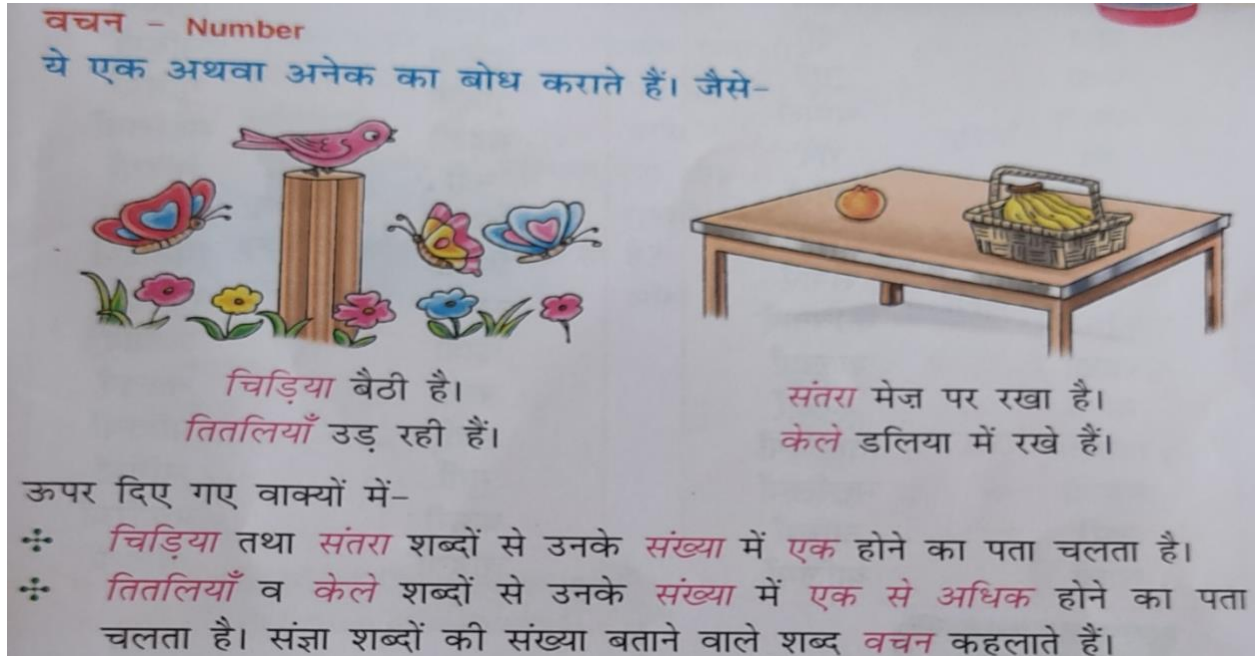 वचन - Number
ये एक अथवा अनेक का बोध कराते हैं। जैसे-
चिड़िया बैठी है।
तितलियाँ उड़ रही हैं।
संतरा मेज़ पर रखा है।
केले डलिया में रखे हैं।
ऊपर दिए गए वाक्यों में-
चिड़िया तथा संतरा शब्दों से उनके संख्या में एक होने का पता चलता है।
तितलियाँ व केले शब्दों से उनके संख्या में एक से अधिक होने का पता
चलता है। संज्ञा शब्दों की संख्या बताने वाले शब्द वचन कहलाते हैं।